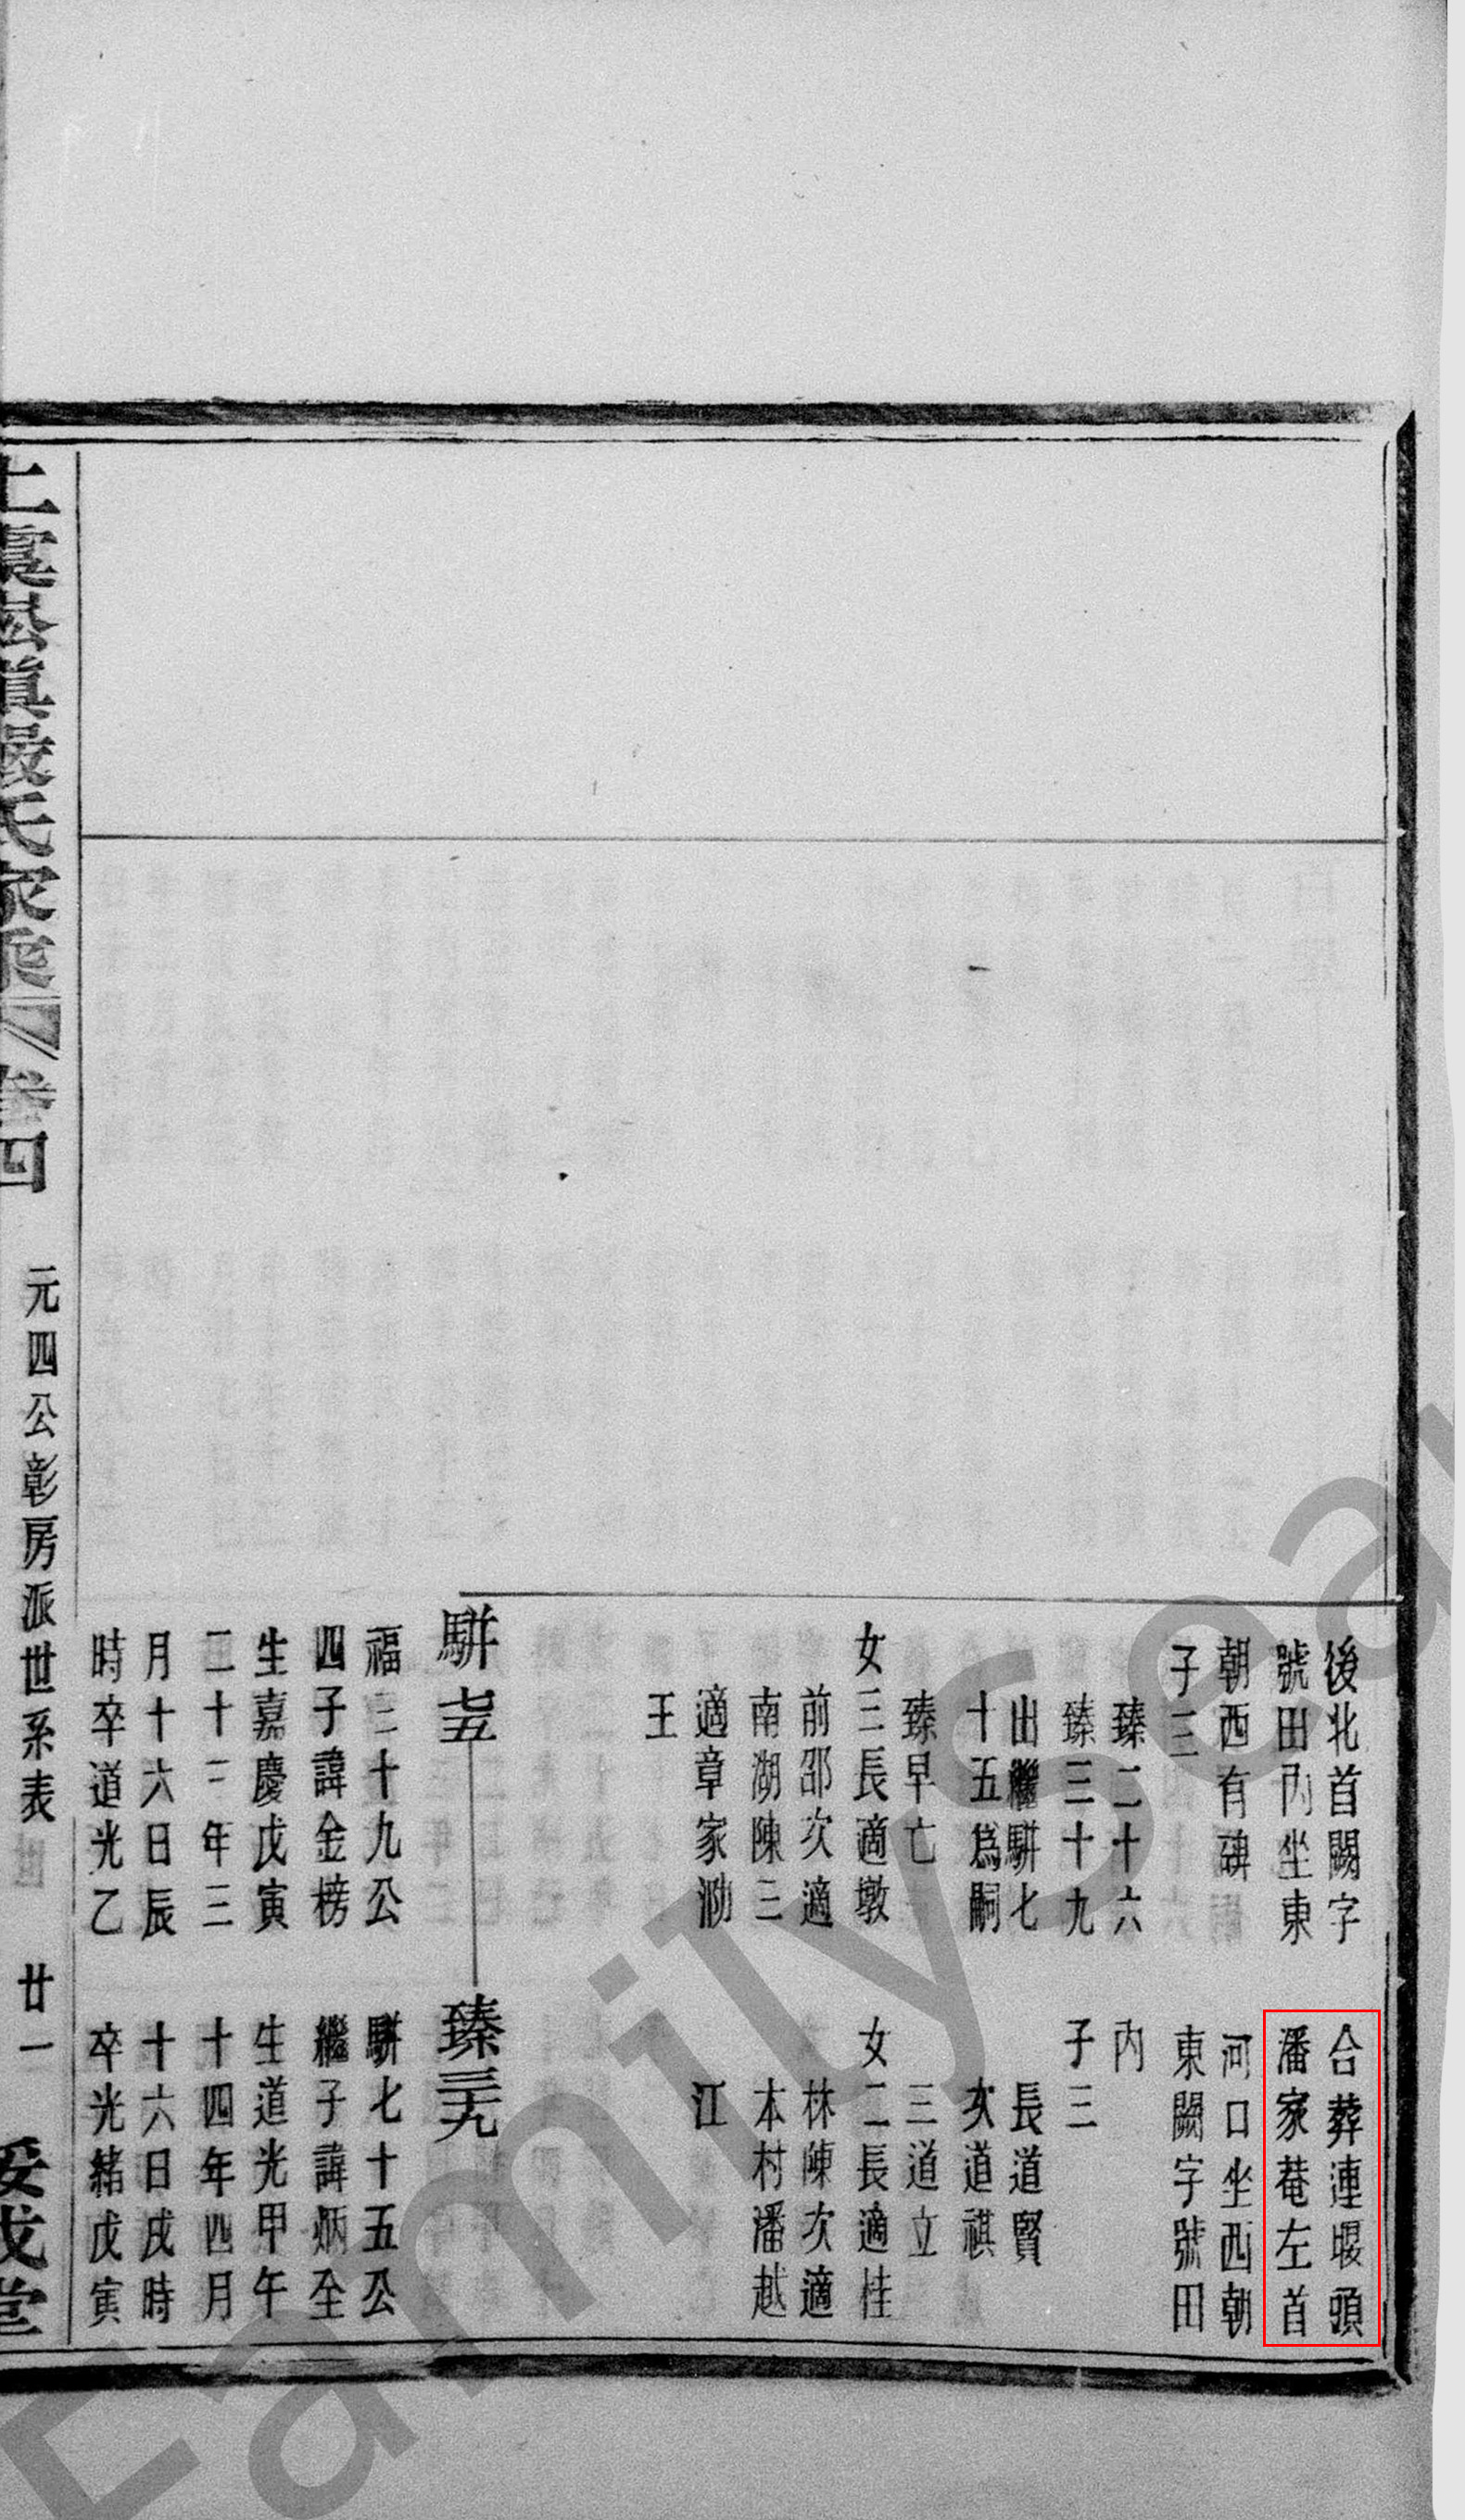 後北首闕字
號田內坐東
朝西有碑
子三
臻二十六
臻三十九
出繼駢七
十五爲嗣
臻早亡
女三長適墩
前邵次適
南湖陳三
適章家泐
王
駢七五
福三十九公
四子諱金榜
生嘉慶戊寅
二十三年三
月十六日辰
時卒道光乙
合葬連堰頭
潘家菴左首
河口坐西朝
東闕字號田
內
子三
長道賢
次道祺
三道立
女二長適桂
林陳次適
本村潘越
江
臻三九
駢七十五公
繼子諱炳全
生道光甲午
十四年四月
十六日戌時
卒光緒戊寅
上虞崧鎭嚴氏家乘 卷四 元四公彰房派世系表 廿一
FamilySea